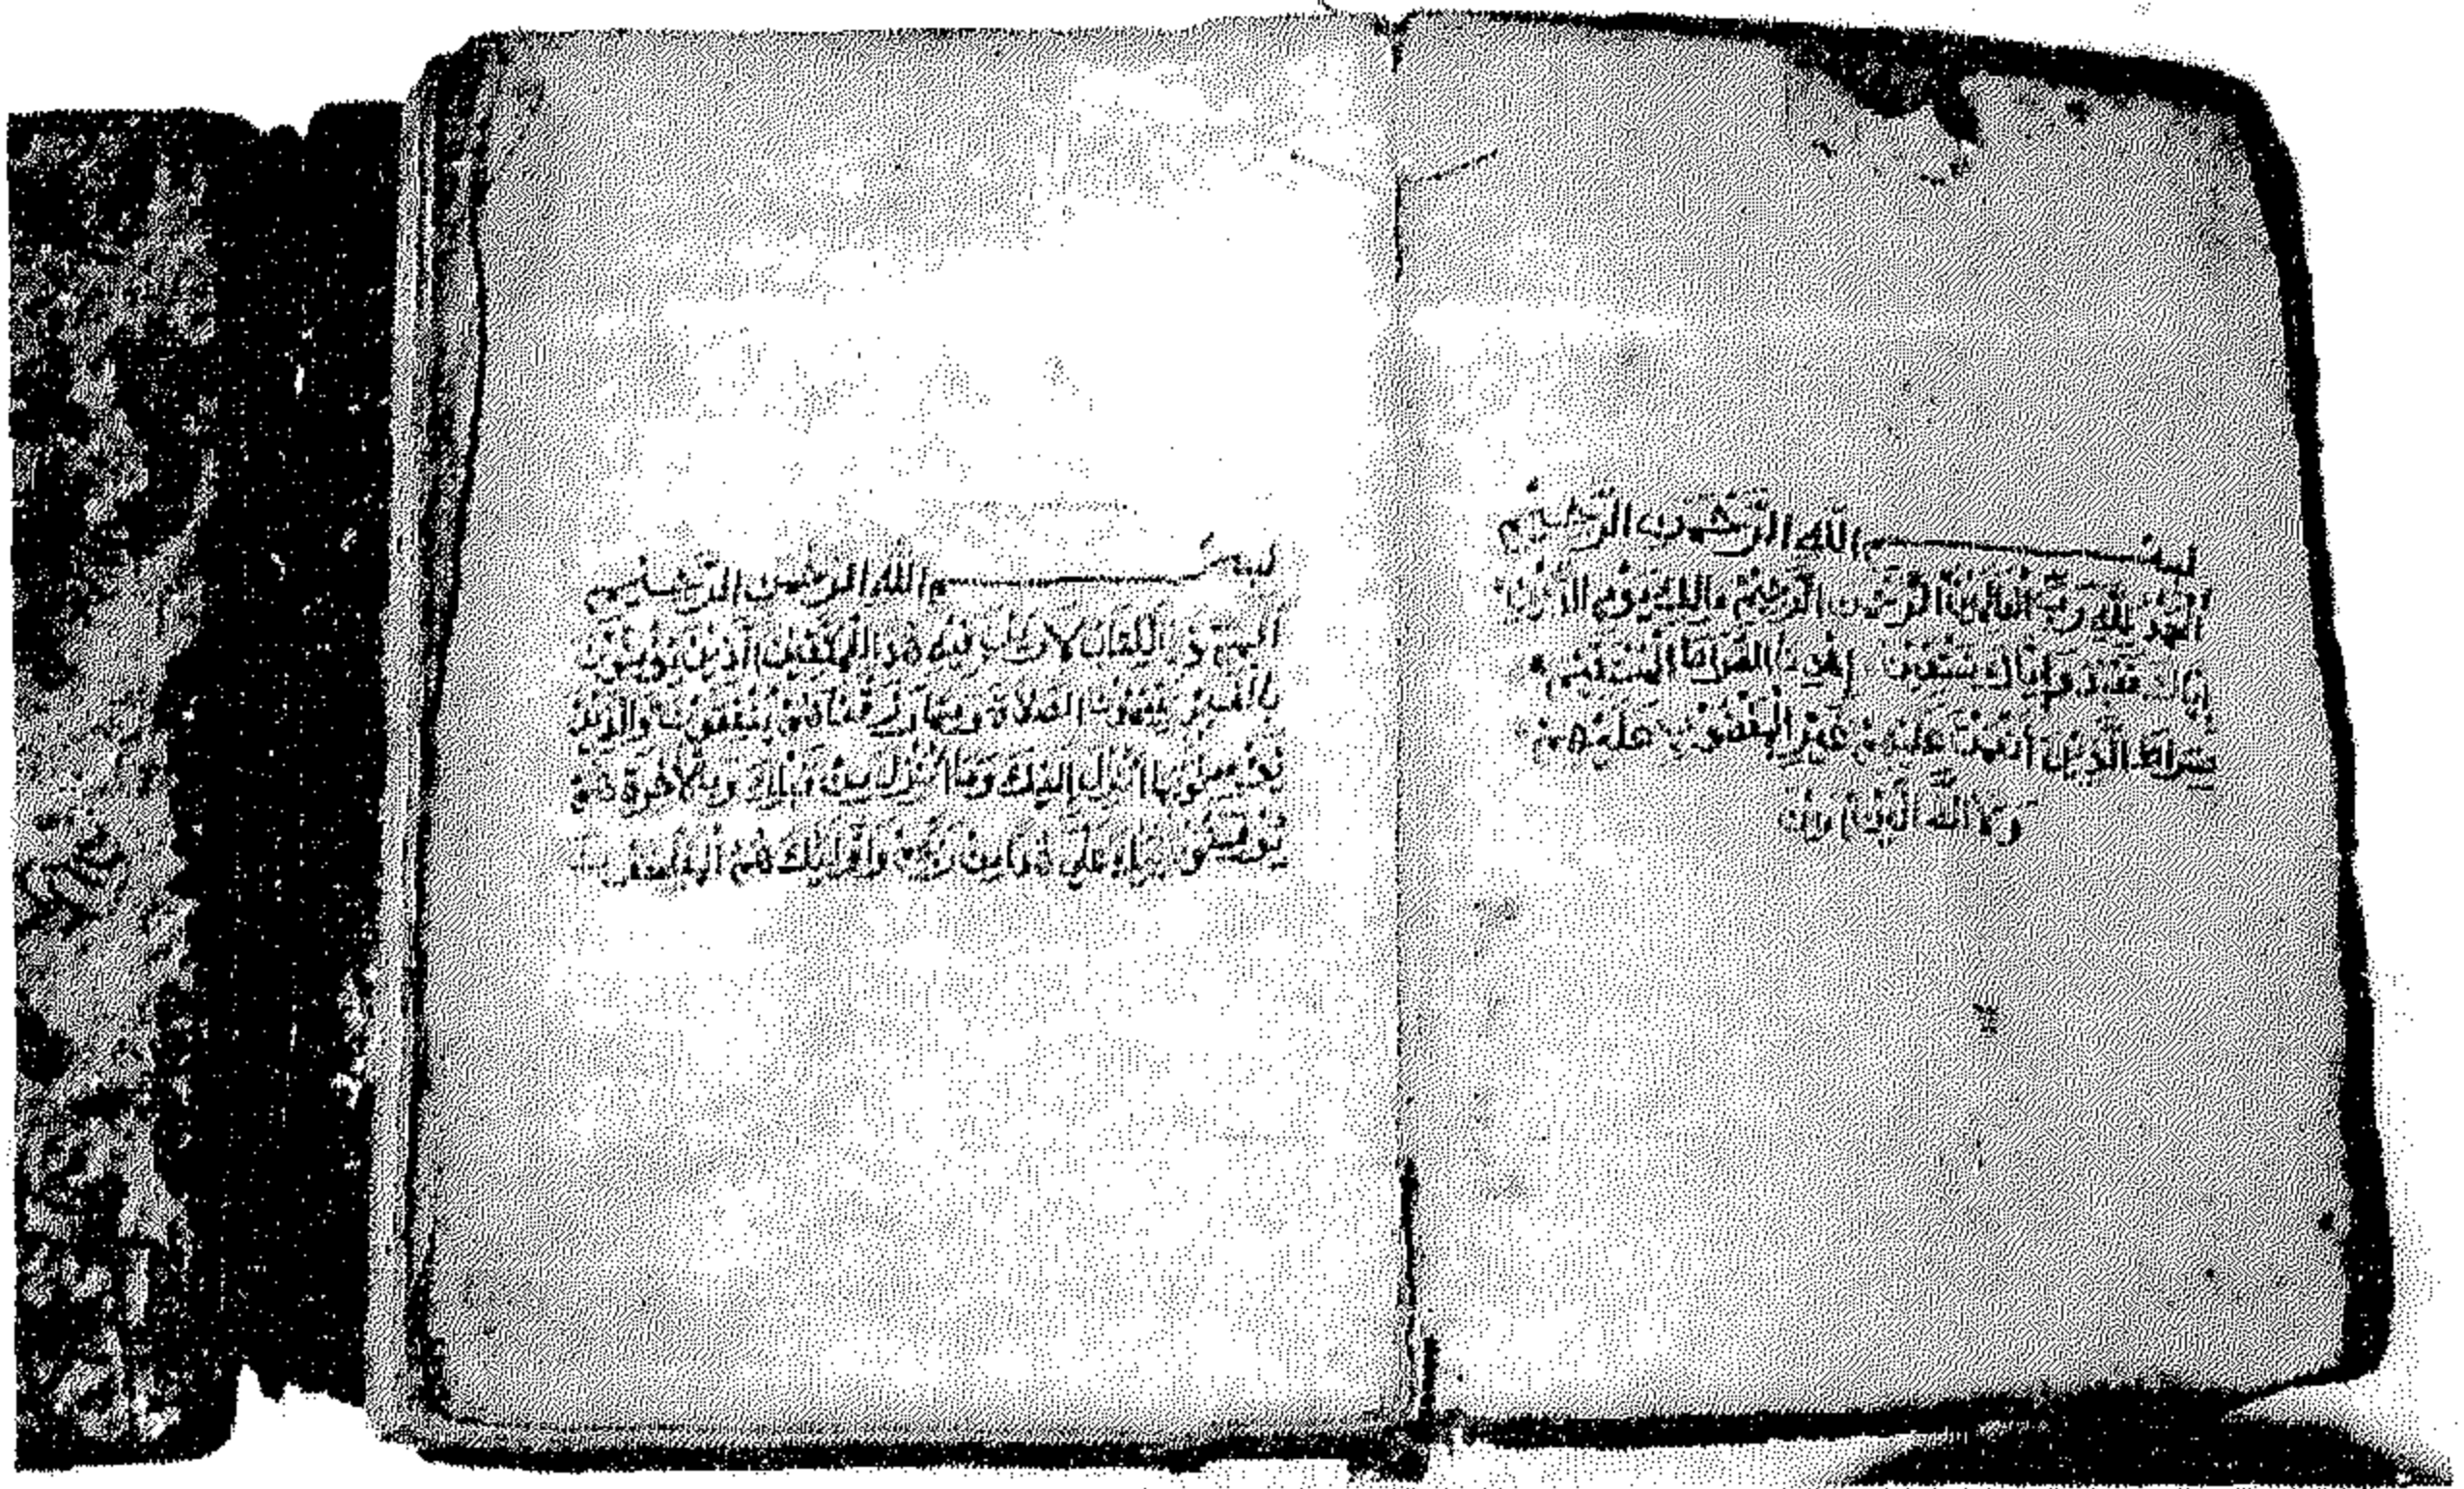 بسم الله الرحمن الرحيم
الحمد لله رب العالمين الرحمن الرحيم مالك يوم الدين
إياك نعبد وإياك نستعين إهدنا الصراط المستقيم
صراط الذين أنعمت عليهم غير المغضوب عليهم
ولا الضالين
بسم الله الرحمن الرحيم
الم ذلك الكتاب لا ريب فيه هدى للمتقين الذين يؤمنون
بالغيب ويقيمون الصلاة ومما رزقناهم ينفقون والذين
يؤمنون بما أنزل إليك وما أنزل من قبلك وبالآخرة هم
يوقنون أولئك على هدى من ربهم وأولئك هم المفلحون